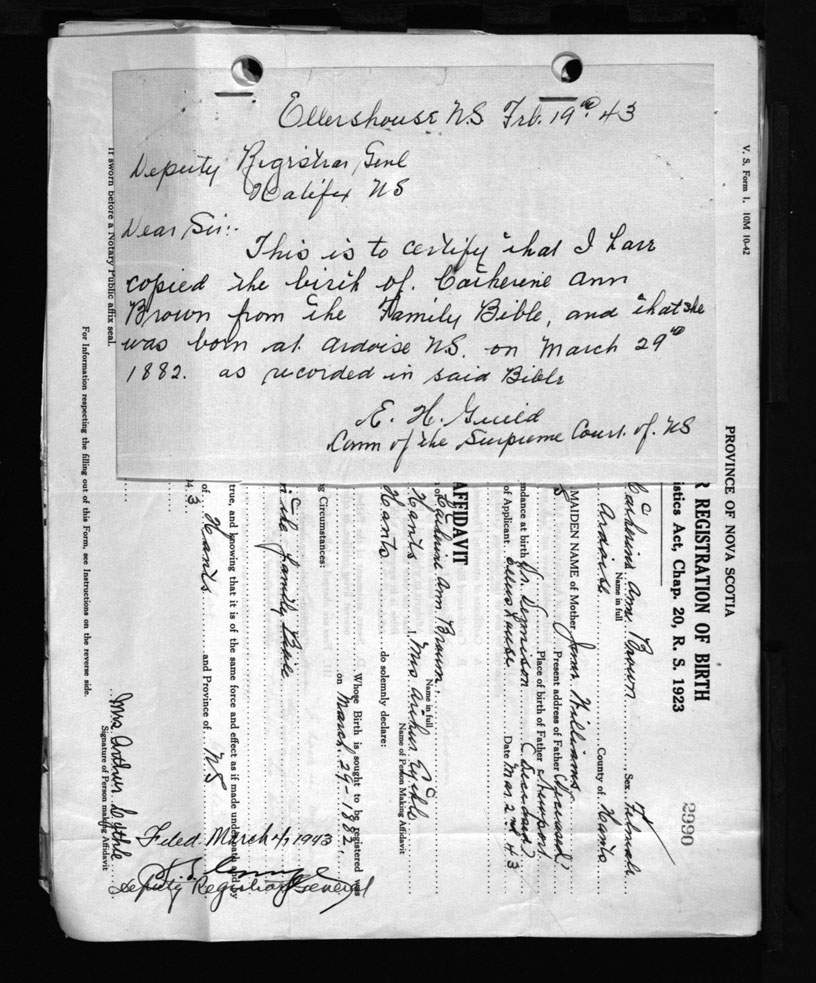 Ellershouse N.S Feb. 19th 43
Deputy Registrar Genl
Halifax NS
Dear Sir:-
This is to certify that I have
copied the birth of. Catherine Ann
Brown from the Family Bible, and that she
was born at Ardoise N.S. on March 29th
1882. as recorded in said Bible
E. H. Guild
Comm of the Supreme Court. of. NS
V. S. Form 1. 10M 10-42
PROVINCE OF NOVA SCOTIA
R REGISTRATION OF BIRTH
istics Act, Chap. 20, R. S. 1923
2990
Catherine Ann Brown Sex Female
Name in full
Ardoise County of Hants
MAIDEN NAME of Mother Jane Williams
Present address of Father (Deceased)
Place of birth of Father Newport
ndance at birth Dr. (Deceased)
of Applicant Ellershouse Date Mar 2nd 43
AFFIDAVIT
Catherine Ann Brown.
Name in full
Hants I, Mrs Arthur
Name of Person Making Affidavit
Hants do solemnly declare:
Whose Birth is sought to be registered was
on March. 29-1882.
ng Circumstances:
the family Bible
true, and knowing that it is of the same force and effect as if made under oath and by
of Hants and Province of NS
4 3
Mrs Arthur
Signature of Person making Affidavit
It sworn before a Notary Public affix seal.
For Information respecting the filling out of this Form, see Instructions on the reverse side.
Filed March 4/1943
Deputy Registrar General